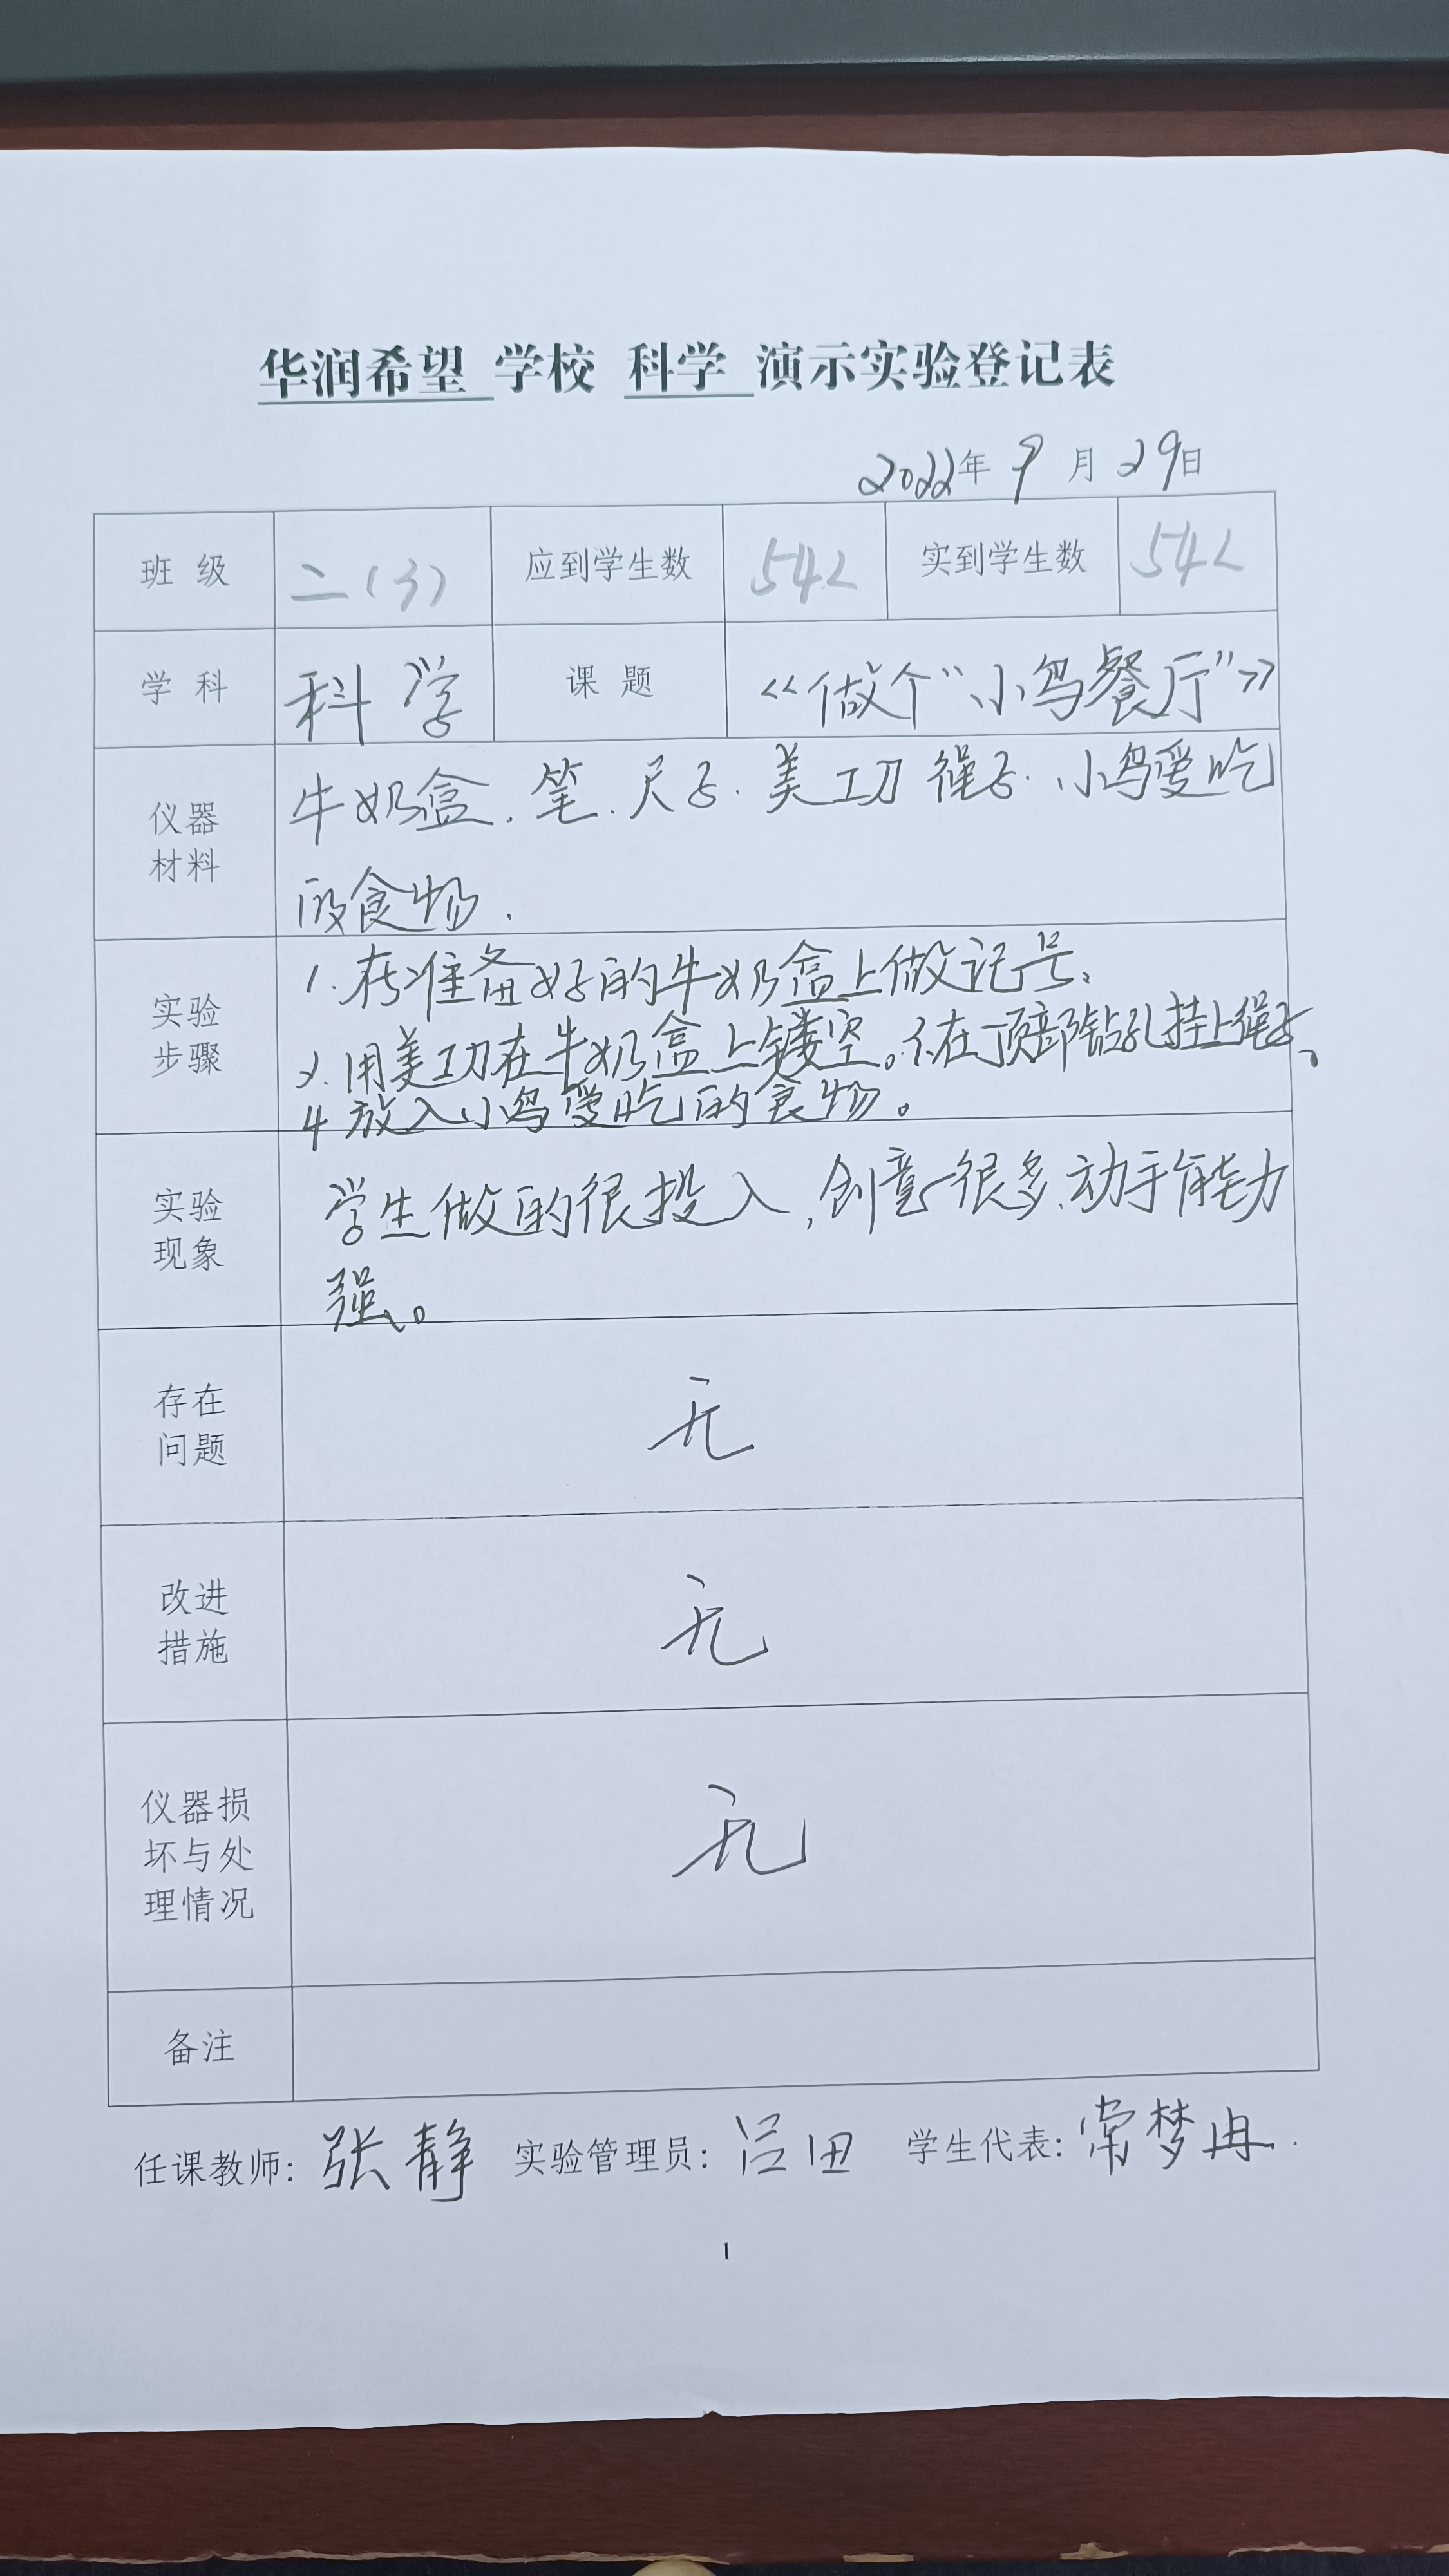 华润希望 学校 科学 演示实验登记表
2022年 9 月 29日
班 级 二(3) 应到学生数 54人 实到学生数 54人
学 科 科学 课 题 《做个“小鸟餐厅”》
仪器
材料
牛奶盒.笔.尺子.美工刀 绳子.小鸟爱吃
的食物.
实验
步骤
1.在准备好的牛奶盒上做记号、
2.用美工刀在牛奶盒上镂空。3.在顶部钻孔挂上绳子、
4 放入小鸟爱吃的食物。
实验
现象
学生做的很投入,创意很多、动手能力
强。
存在
问题
无
改进
措施
无
仪器损
坏与处
理情况
无
备注
任课教师: 张静 实验管理员: 吕田 学生代表: 常梦冉.
1